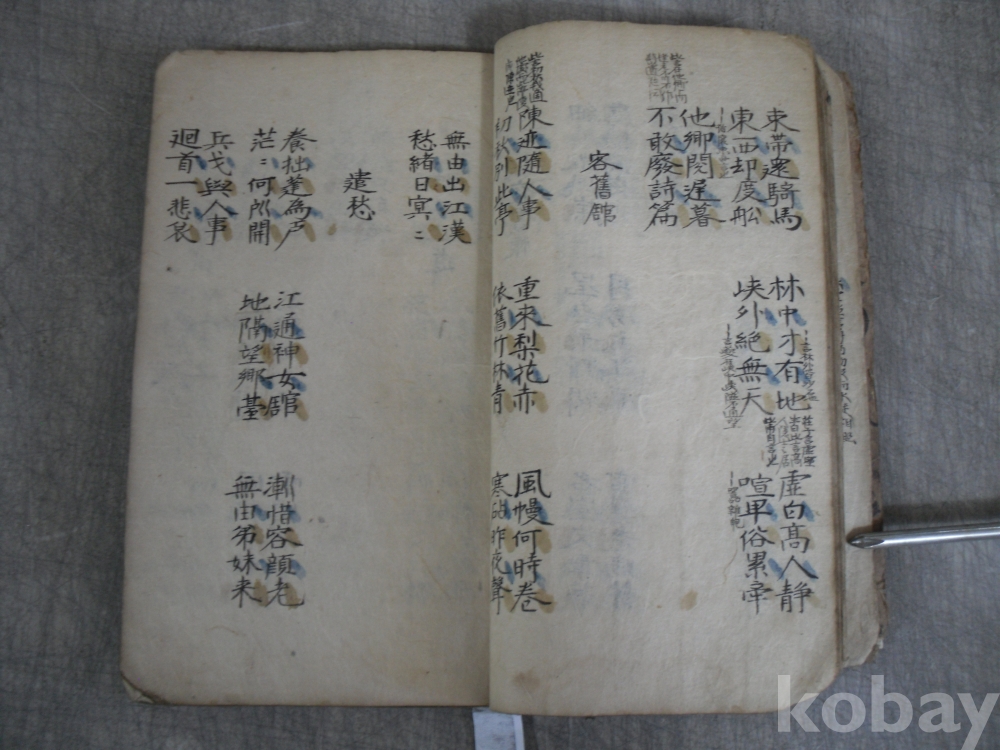 束帶還騎馬
東西却度舩
林中才有地
峽外絶無天
虛白高人静
喧卑俗累牽
他鄉閱遲暮
不敢廢詩篇
客舊舘
陳迹隨人事
初秋別此亭
重來梨花赤
依舊竹林青
風幔何時卷
寒砧昨夜聲
無由出江漢
愁緒日冥〻
遣愁
養拙蓬為户
茫〻何所開
江通神女舘
地隔望鄉臺
漸惜容顔老
無由弟妹来
兵戈與人事
迴首一悲哀
kobay